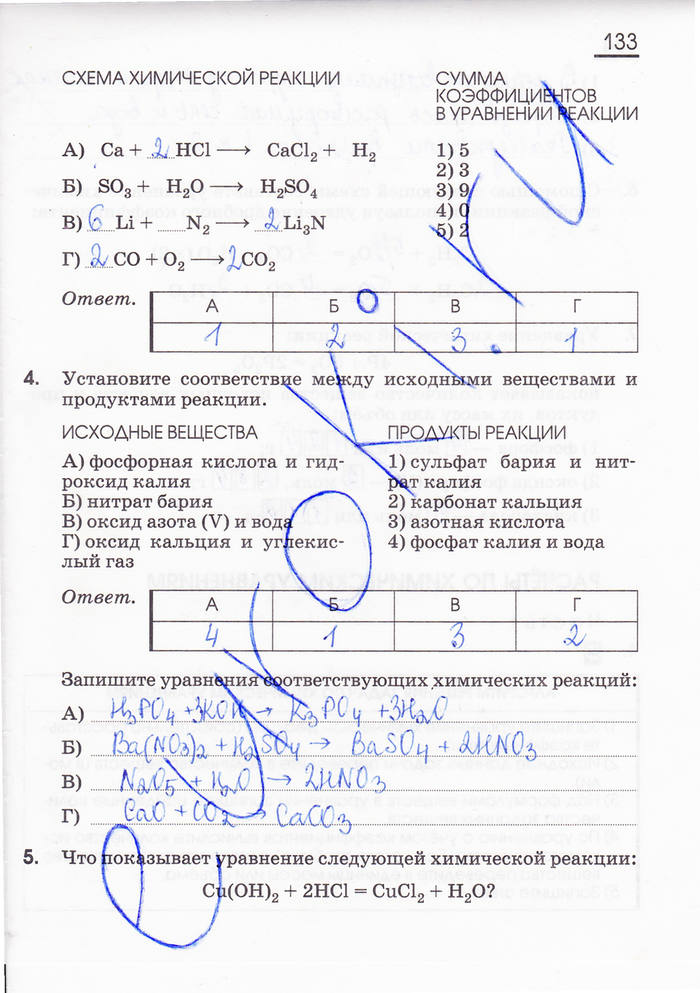 133
СХЕМА ХИМИЧЕСКОЙ РЕАКЦИИ
СУММА
КОЭФФИЦИЕНТОВ
В УРАВНЕНИИ РЕАКЦИИ
А) Ca + 2 HCl ⟶ CaCl₂ + H₂
Б) SO₃ + H₂O ⟶ H₂SO₄
В) 6 Li + N₂ ⟶ 2 Li₃N
Г) 2 CO + O₂ ⟶ 2CO₂
1) 5
2) 3
3) 9
4) 0
5) 2
Ответ.
А Б В Г
1 2 3 1
4. Установите соответствие между исходными веществами и
продуктами реакции.
ИСХОДНЫЕ ВЕЩЕСТВА
А) фосфорная кислота и гид-
роксид калия
Б) нитрат бария
В) оксид азота (V) и вода
Г) оксид кальция и углекис-
лый газ
ПРОДУКТЫ РЕАКЦИИ
1) сульфат бария и нит-
рат калия
2) карбонат кальция
3) азотная кислота
4) фосфат калия и вода
Ответ.
А Б В Г
4 1 3 2
Запишите уравнения соответствующих химических реакций:
А) H₃PO₄ + 3KOH → K₃PO₄ + 3H₂O
Б) Ba(NO₃)₂ + H₂SO₄ → BaSO₄ + 2HNO₃
В) N₂O₅ + H₂O → 2HNO₃
Г) CaO + CO₂ → CaCO₃
5. Что показывает уравнение следующей химической реакции:
Cu(OH)₂ + 2HCl = CuCl₂ + H₂O?